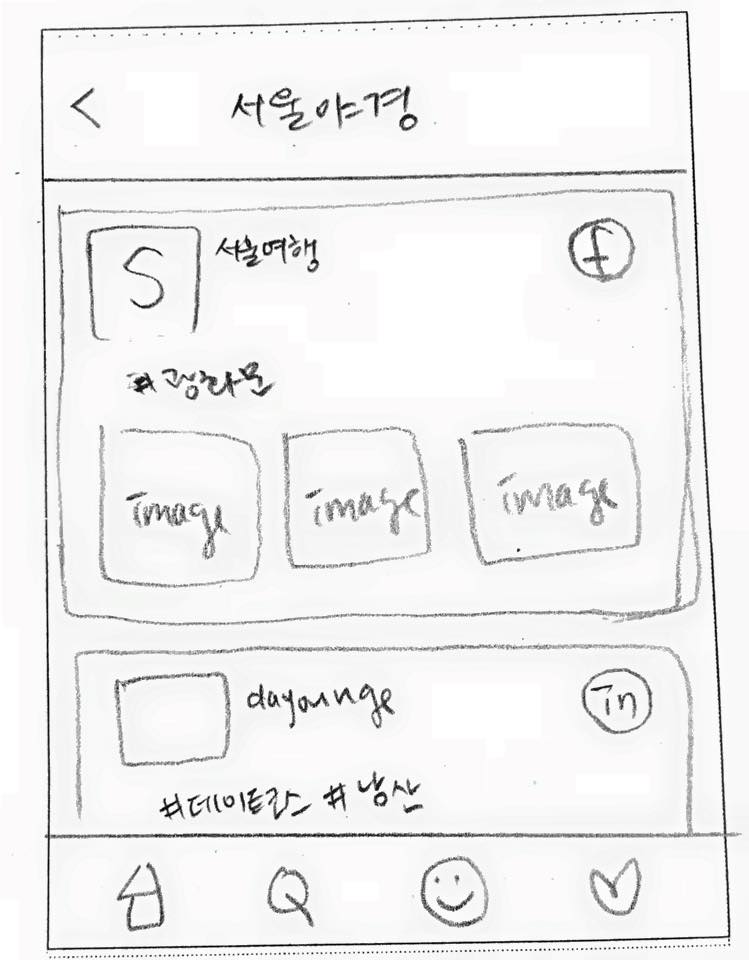 < 서울야경
S 서울여행 f
#광화문
image image image
dayounge in
#데이트코스 #남산